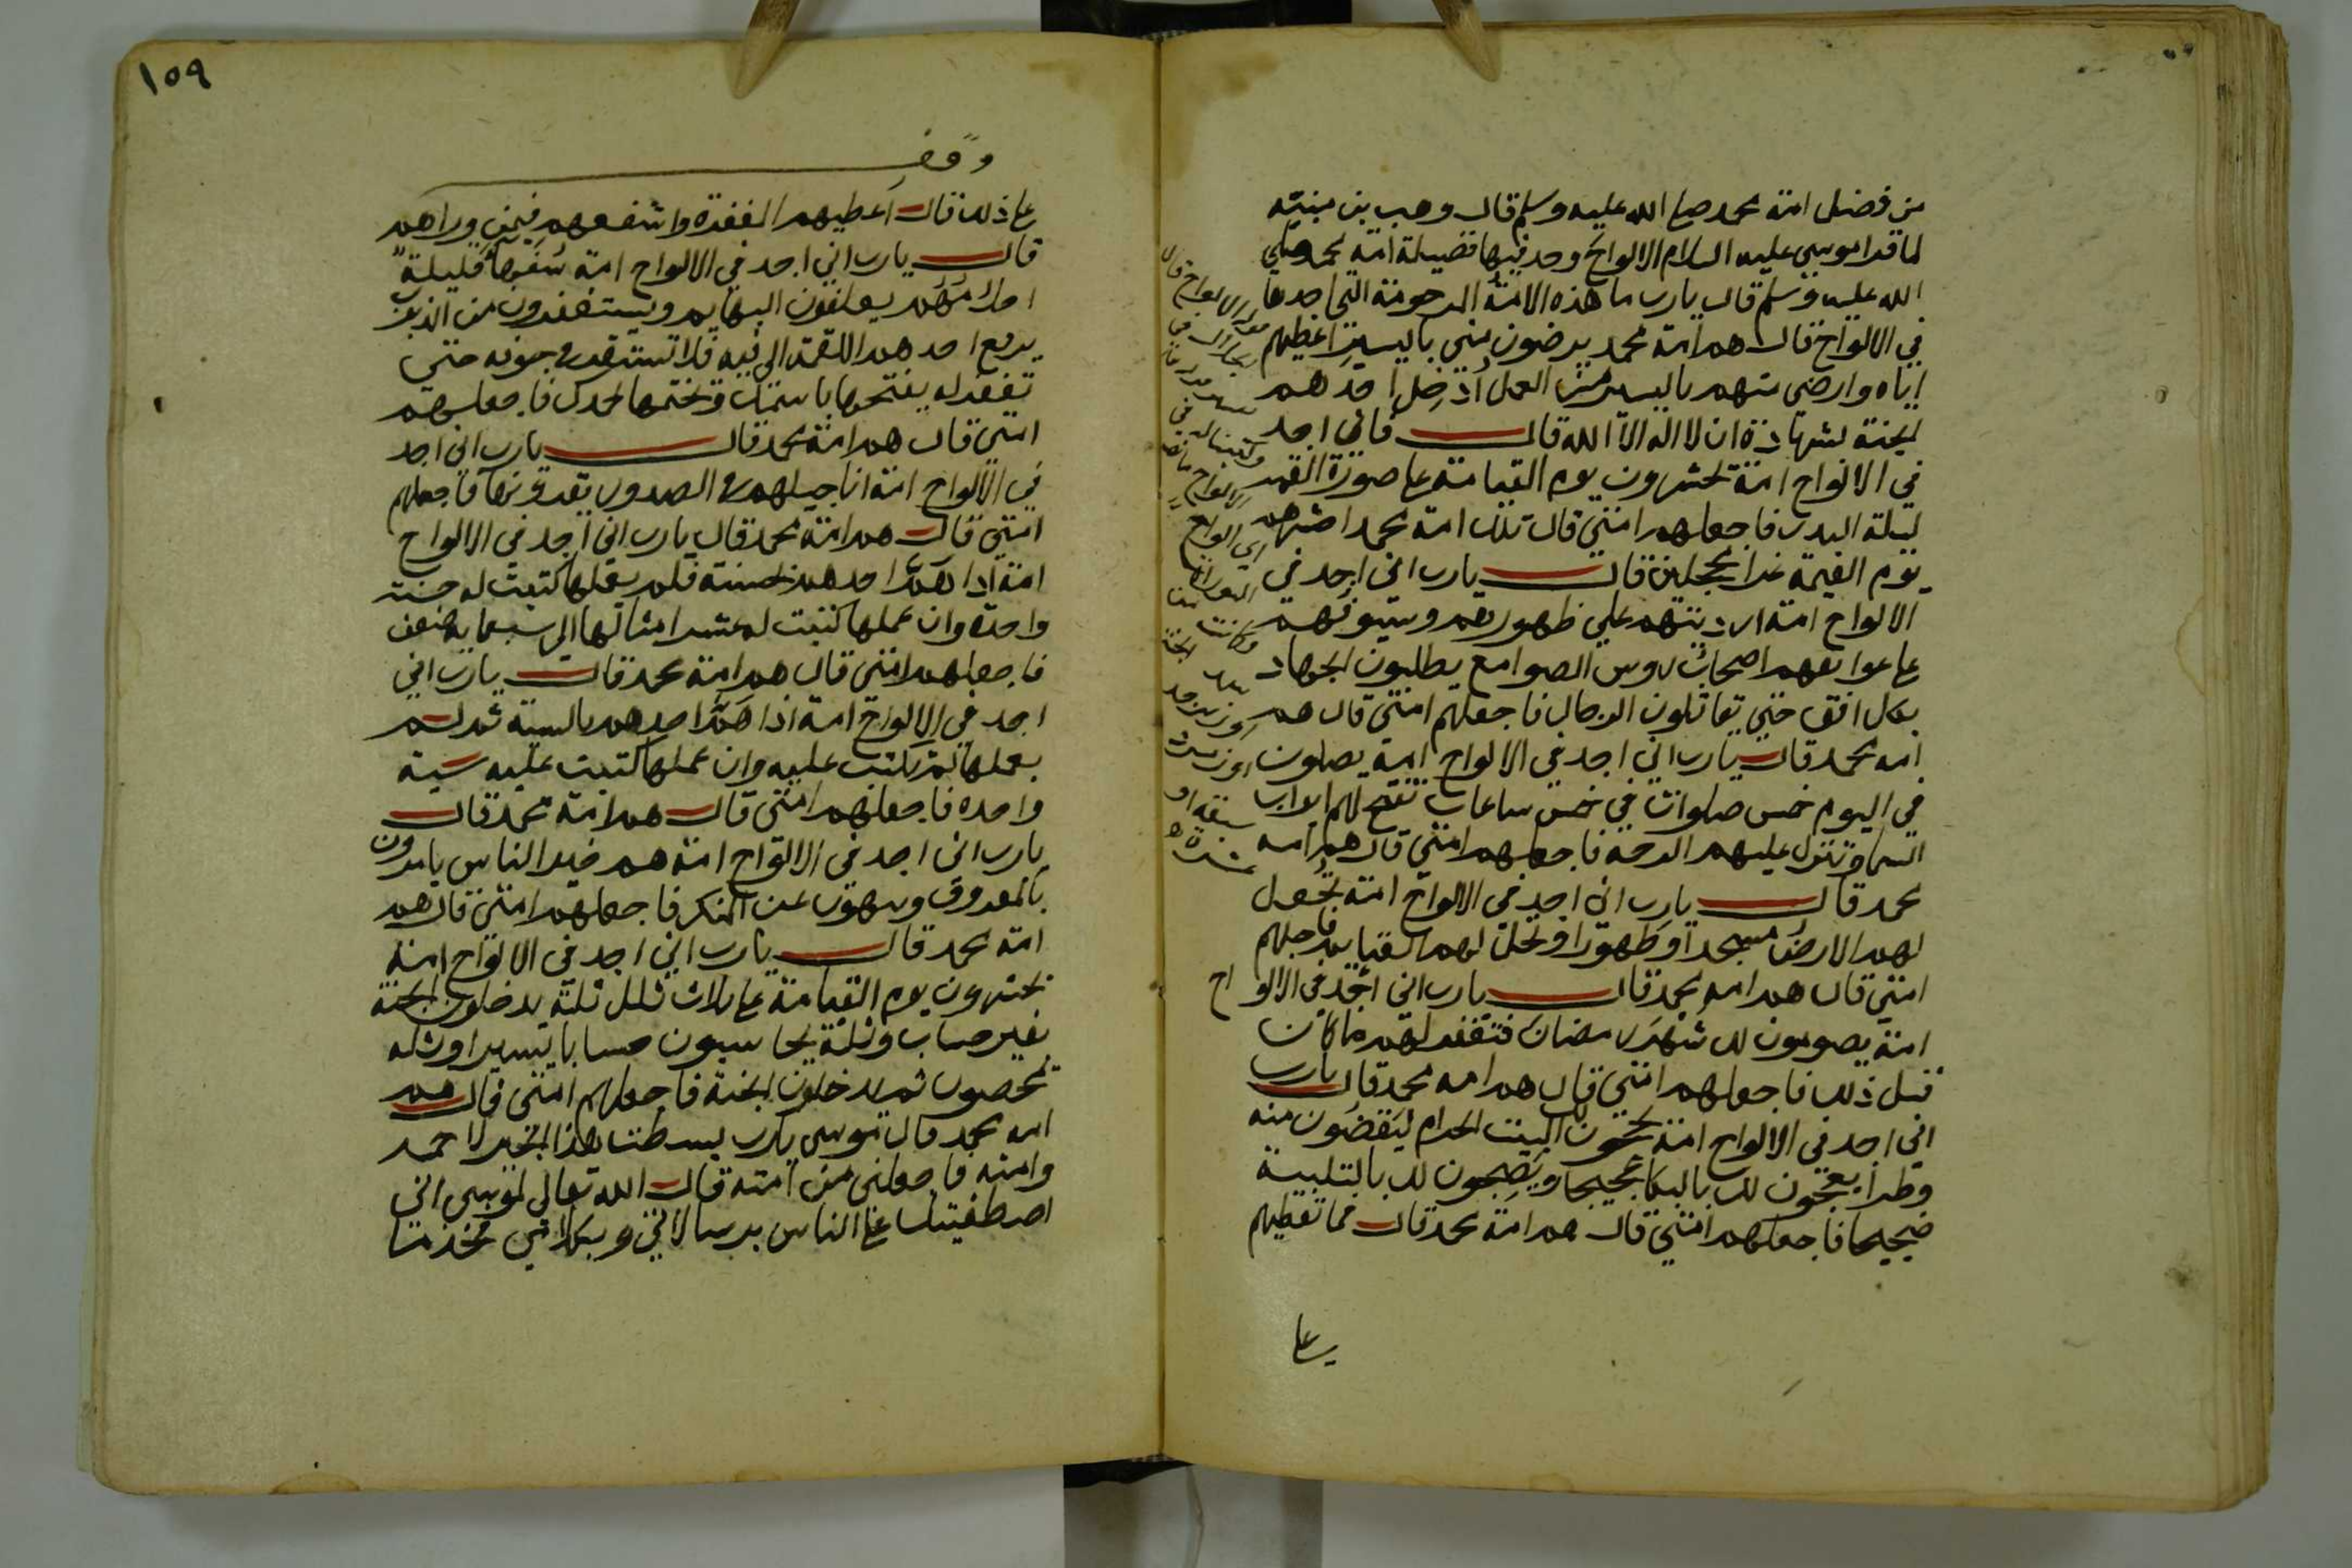 من فضل امة محمد صلى الله عليه وسلم قال وهب بن منبه
لما قرا موسى عليه السلام الالواح وجد فيها فضيلة امة محمد صلى
الله عليه وسلم قال يا رب ما هذه الامة المرحومة التي اجدها
في الالواح قال هم امة محمد يرضون مني باليسير اعطيهم
اياه وارضى منهم باليسير من العمل أدخل احدهم
الجنة بشهادة ان لا اله الا الله قال فاني اجد
في الالواح امة يحشرون يوم القيامة على صورة القمر
ليلة البدر فاجعلهم امتي قال تلك امة محمد احشرهم
يوم القيمة غرا محجلين قال يا رب اني اجد في
الالواح امة ارديتهم على ظهورهم وسيوفهم
على عواتقهم اصحاب روس الصوامع يطلبون الجهاد
بكل افق حتى يقاتلون الدجال فاجعلهم امتي قال هم
امة محمد قال يا رب اني اجد في الالواح امة يصلون
في اليوم خمس صلوات في خمس ساعات تفتح لهم ابواب
السما وتنزل عليهم الرحمة فاجعلهم امتي قال هم امة
محمد قال يا رب اني اجد في الالواح امة تجعل
لهم الارض مسجدا وطهورا وتحل لهم الغنايم فاجعلهم
امتي قال هم امة محمد قال يا رب اني اجد في الالواح
امة يصومون لك شهر رمضان فتغفر لهم ما كان
قبل ذلك فاجعلهم امتي قال هم امة محمد قال يا رب
اني اجد في الالواح امة يحجون لك البيت الحرام ليقضون منه
وطرا يعجون لك بالبكا عجيجا ويضجون لك بالتلبية
ضجيجا فاجعلهم امتي قال هم امة محمد قال فما تعطيهم
على
في الالواح
اي الواح
التوراة
وكانت من
الجنة
زبرجد
١٥٩
وقف
على ذلك قال اعطيهم المغفرة واشفعهم فيمن وراهم
قال يا رب اني اجد في الالواح امة سفها قليلة
احلامهم يعلفون البهايم ويستغفرون من الذنوب
يرفع احدهم اللقمة الى فيه فلا تستقر في جوفه حتى
تغفر له يفتحها باسمك ويختمها بحمدك فاجعلهم
امتي قال هم امة محمد قال يا رب اني اجد
في الالواح امة اناجيلهم في الصدور يقرونها فاجعلهم
امتي قال هم امة محمد قال يا رب اني اجد في الالواح
امة اذا هم احدهم بحسنة فلم يعملها كتبت له حسنة
واحدة وان عملها كتبت له عشر امثالها الى سبعماية ضعف
فاجعلهم امتي قال هم امة محمد قال يا رب اني
اجد في الالواح امة اذا هم احدهم بالسيية ثم لم
يعملها لم تكتب عليه وان عملها كتبت عليه سيية
واحده فاجعلهم امتي قال هم امة محمد قال
يا رب اني اجد في الالواح امة هم خير الناس يامرون
بالمعروف وينهون عن المنكر فاجعلهم امتي قال هم
امة محمد قال يا رب اني اجد في الالواح امة
يحشرون يوم القيامة على ثلاث ثلل ثلة يدخلون الجنة
بغير حساب وثلة يحاسبون حسابا يسيرا وثلة
يمحصون ثم يدخلون الجنة فاجعلهم امتي قال هم
امة محمد قال موسى يا رب بسطت هذا الخير لاحمد
وامته فاجعلني من امته قال الله تعالى لموسى اني
اصطفيتك على الناس برسالاتي وبكلامي فخذ ما